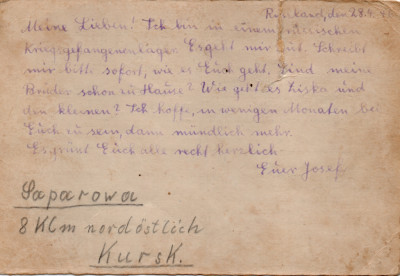 Russland, den 28.4.46
Meine Lieben! Ich bin in einem russischen
Kriegsgefangenenlager. Es geht mir gut. Schreibt
mir bitte sofort, wie es Euch geht. Sind meine
Brüder schon zu Hause? Wie geht es Liska und
den kleinen? Ich hoffe, in wenigen Monaten bei
Euch zu sein, dann mündlich mehr.
Es grüßt Euch alle recht herzlich
Euer Josef
Saparowa
8 Klm nordöstlich
Kursk.